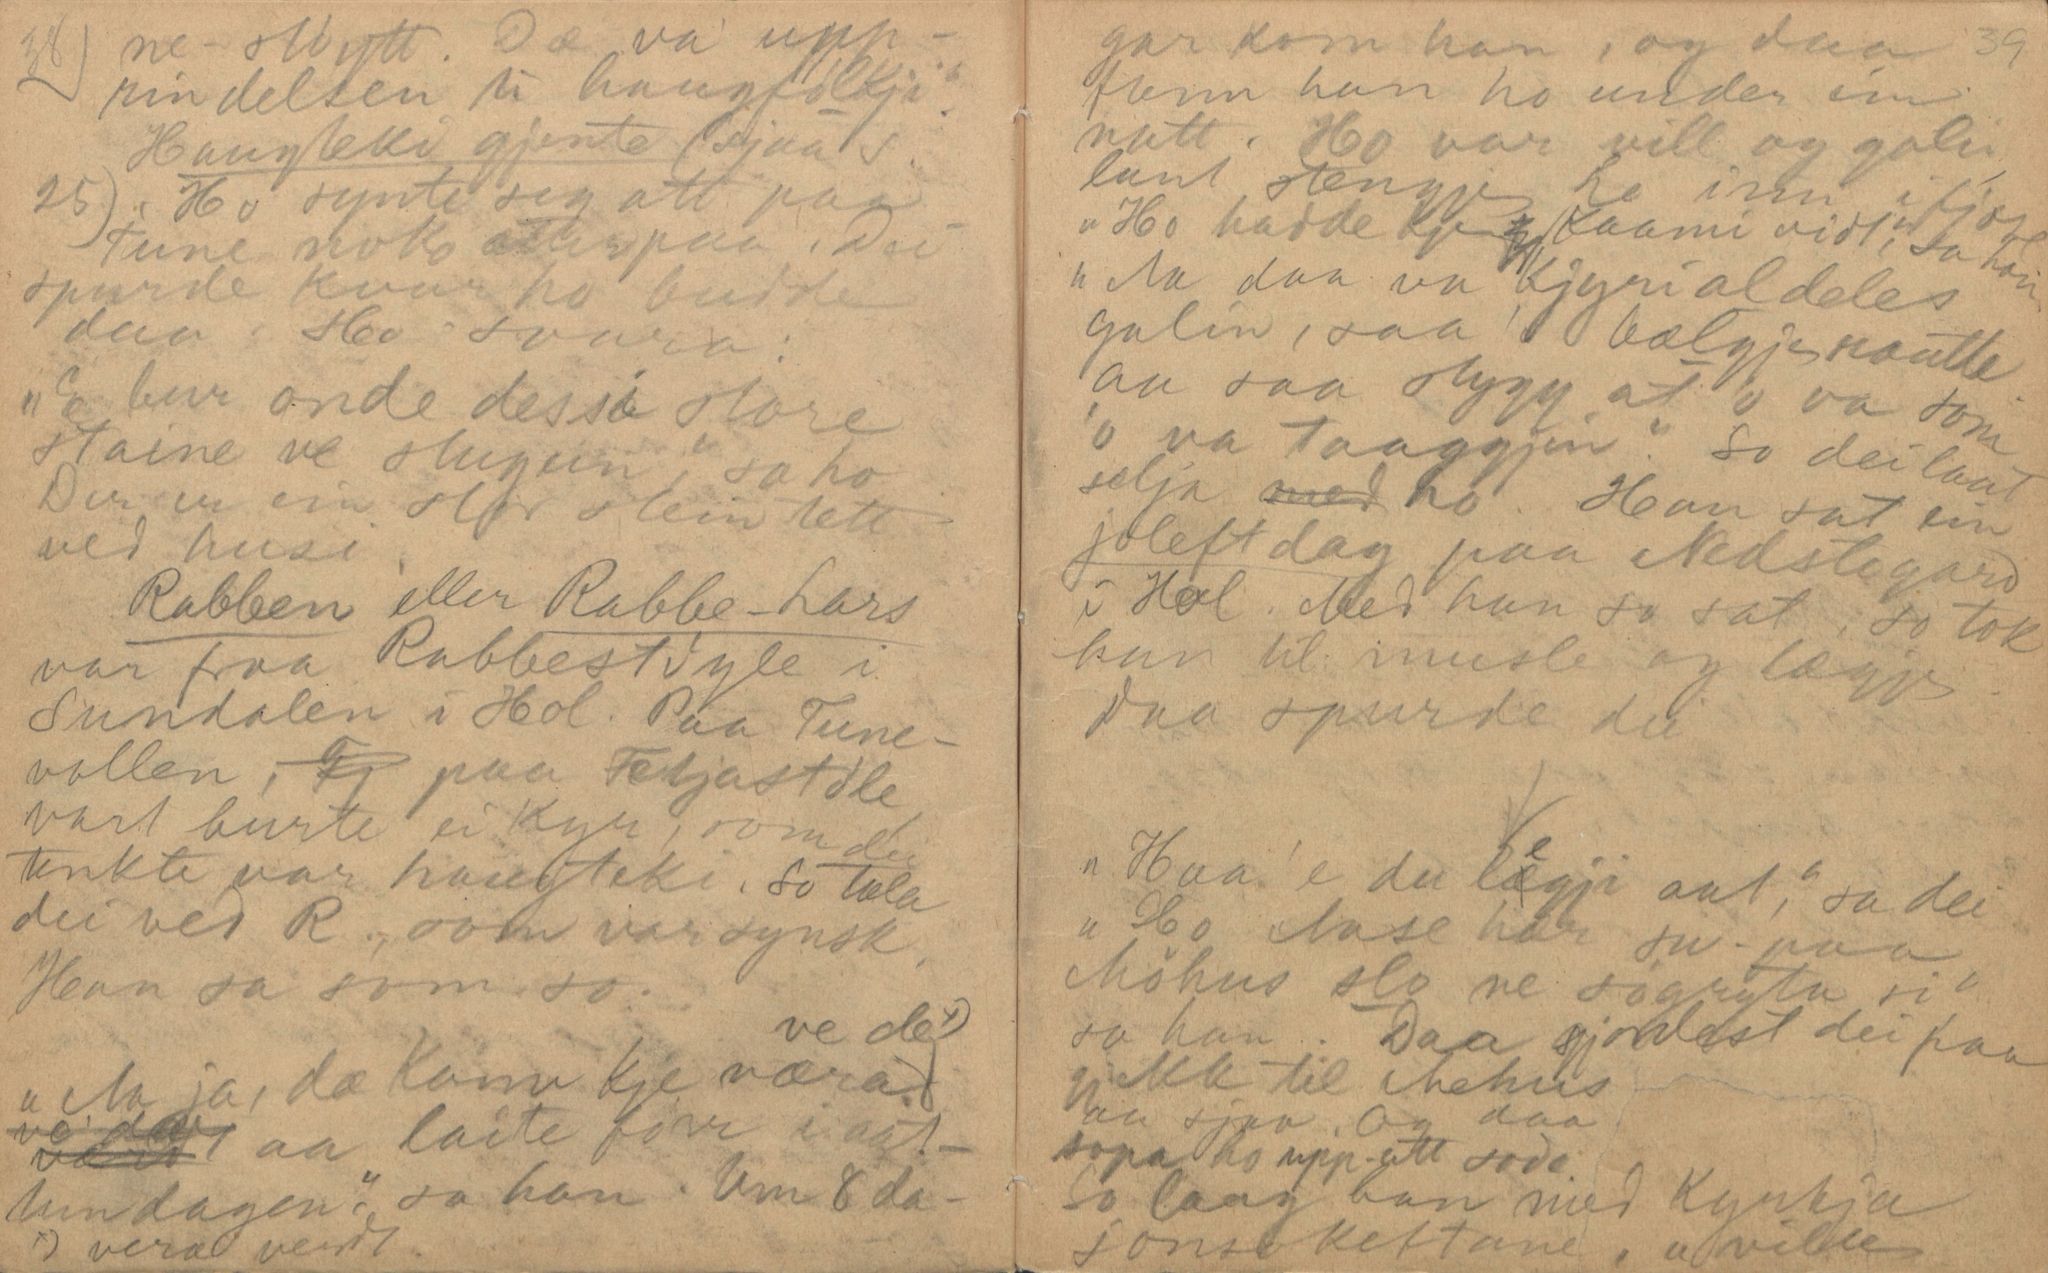 38)
ne-støytt. Dæ va upp-
rindelsen ti haugfolkji".
Haugteki gjente (sjaa s.
25). Ho synte seg att paa
tune noko etterpaa. Dei
spurde kvar ho budde
daa. Ho svara:
"E bur onde dessi store
staine ve stugun," sa ho
Der er ein stor stein tett
ved husi.
Rabben eller Rabbe-Lars
var fraa Rabbestøyle i
Sundalen i Hol. Paa Tune-
vollen, paa Feljastøle
vart burte ei kyr, som dei
tenkte var haugteki. So tala
dei ved R., som var synsk.
Han sa som so.
ve de 1)
"Aa ja, dæ kann kje væra
aa laite førr i aat-
tundagen," sa han. Um 8 da-
1) vera verdt.
39
gar kom han, og daa
fann han ho under ein
nutt. Ho var vill og galin,
laut stengje ho inn i fjos
"Ho hadde kje kaami vidt," sa han,
"Aa daa va kjyri aldeles
galin, saa o bælgja nautte
aa saa stygg at o va som
o va taaggjin." So dei laut
selja ho. Han sat ein
joleftdag paa Nedstegard
i Hol. Med han so sat, so tok
han til musle og lægje
Daa spurde dei
"Haa 'e du lægji aat," sa dei
"Ho Aase hær su-paa
Møhus slo ne søgryta si"
sa han. Daa gjordest dei paa
gjekk til Mehus
aa sjaa. Og daa
sopa ho upp-att sode.
So laag han med Kyrkja
jonsokeftane,